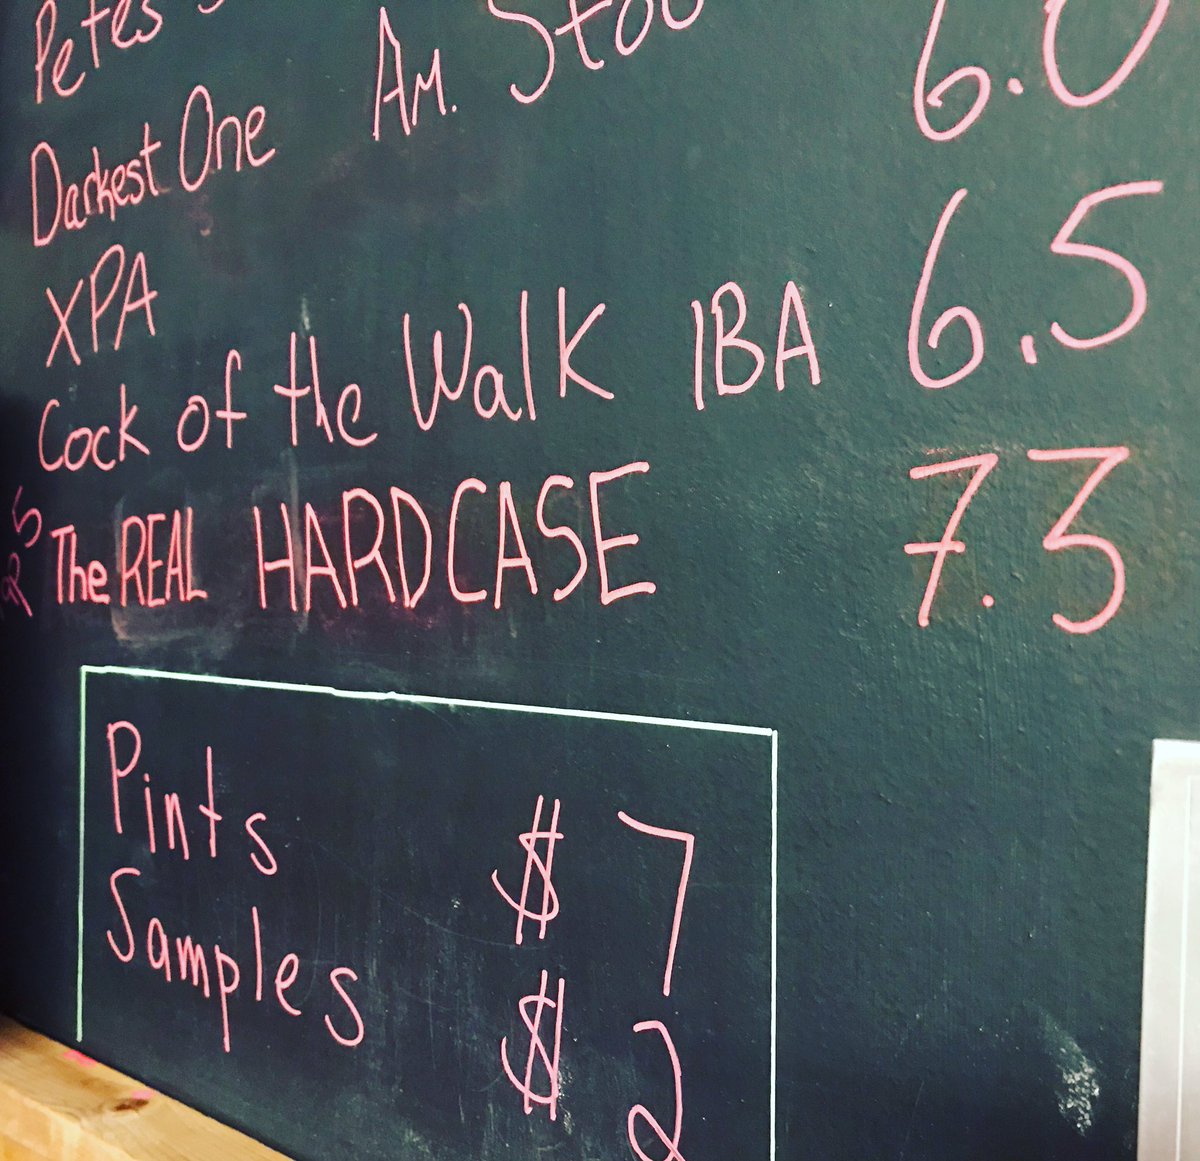 Petes
Darkest One Am. Stou 6.0
XPA
Cock of the Walk IBA 6.5
The REAL HARDCASE 7.3
Pints $ 7
Samples $ 2